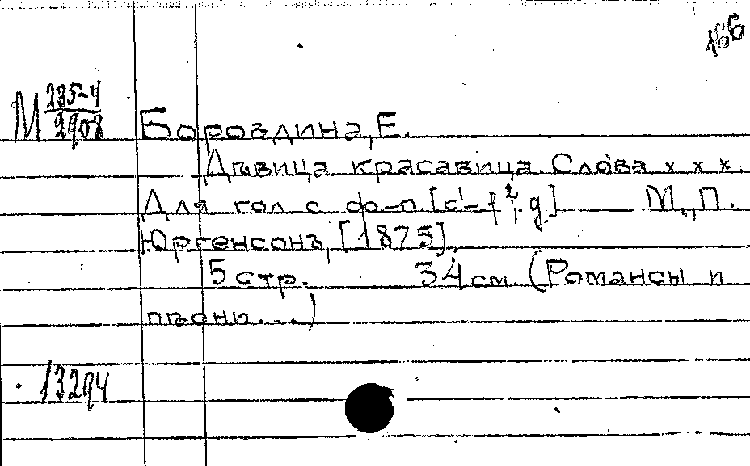 166
М 235-4
2908
Бороздина, Е.
Дѣвица красавица. Слова х х х.
Для гол с ф-п [d'-f²; g.] М., П.
Юргенсонъ, [1875].
5 стр. 34 см (Романсы и
пѣсни...)
13294